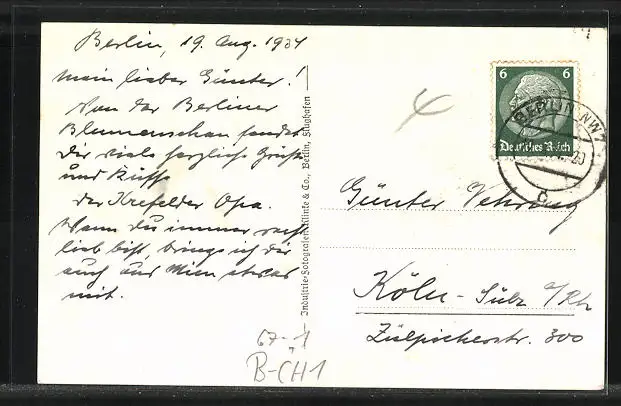 Berlin, 19. Aug. 1934
Mein lieber Günter!
Von der Berliner
Blumenschau sendet
Dir viele herzliche Grüße
und Küsse
der Krefelder Opa.
Wenn du immer recht
lieb bist, bringe ich dir
auch aus Wien etwas
mit.
Industrie-Fotografen Klinke & Co., Berlin, Flughafen
67-1
B-CH1
6 6
Deutsches Reich
BERLIN NW7
Günter Vehring
Köln-Sülz a/Rh
Zülpicherstr. 300